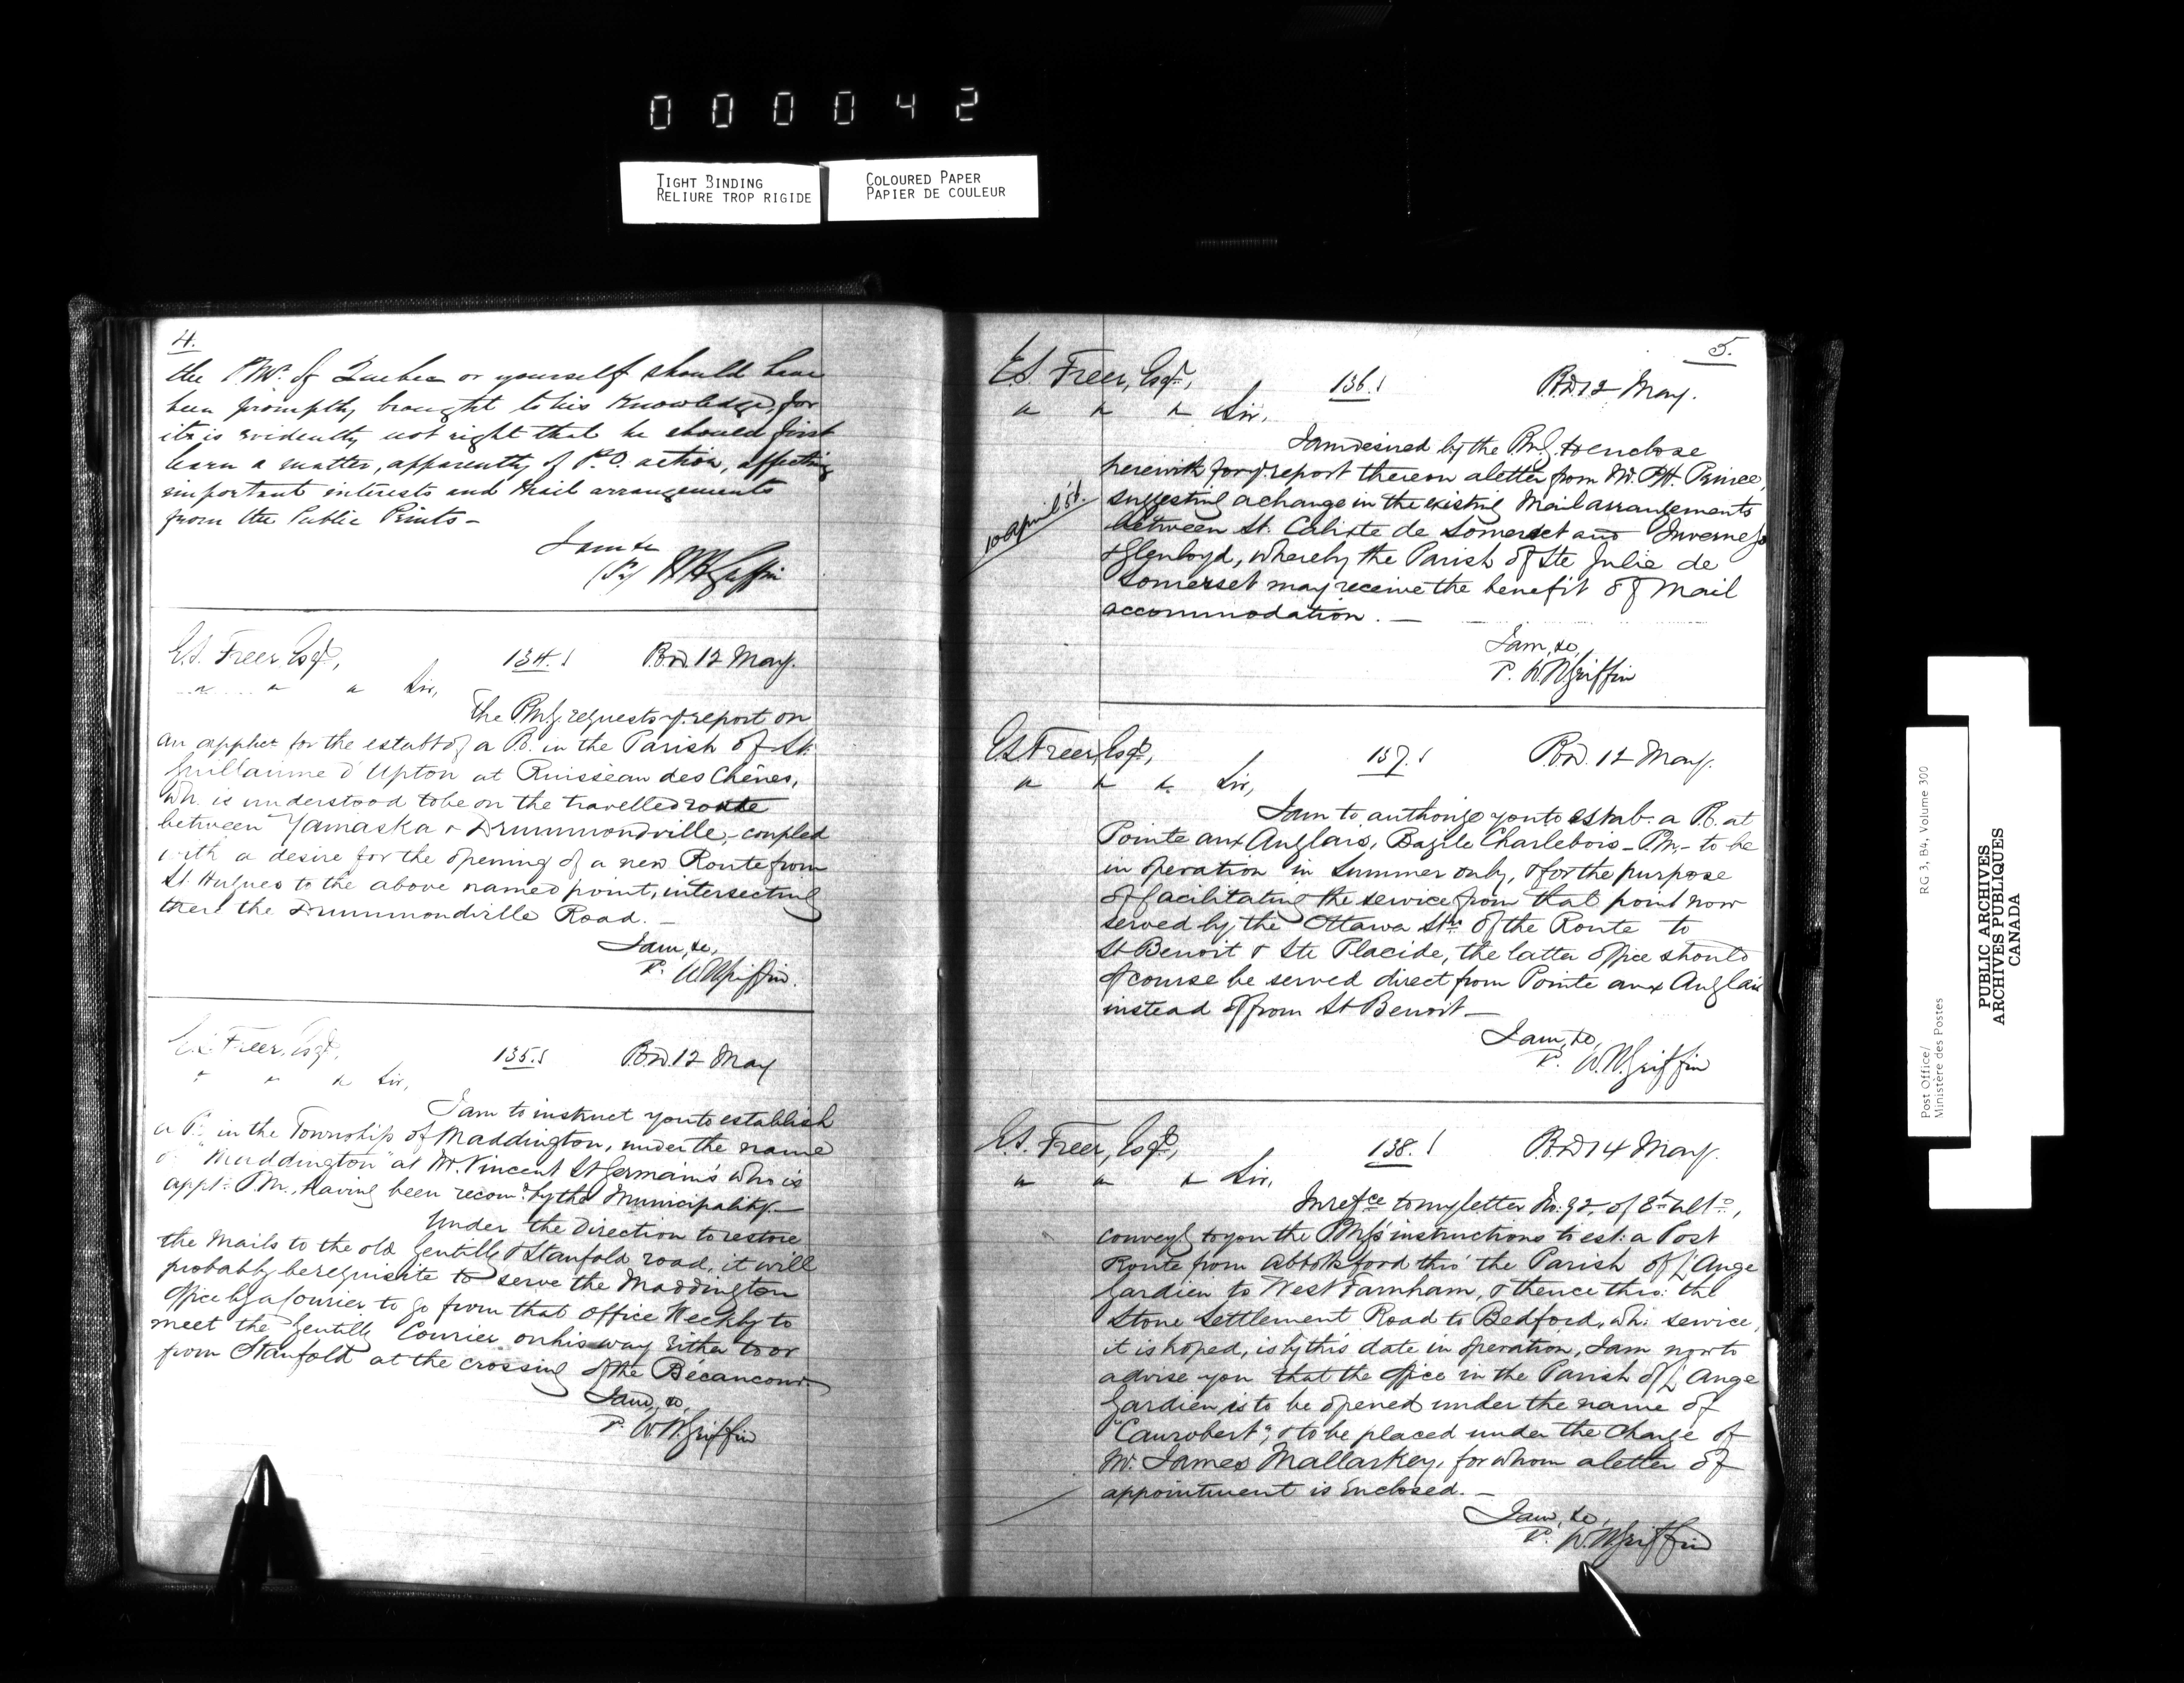 000042
TIGHT BINDING
RELIURE TROP RIGIDE
COLOURED PAPER
PAPIER DE COULEUR
4.
the P.M. of Quebec or yourself should have
been promptly brought to his knowledge, for
it is evidently not right that he should first
learn a matter, apparently of P.O. action, affecting
important interests and Mail arrangements
from the Public Prints -
I am &c
W H Griffin
E.S. Freer, Esqr,
134. Pod. 12 May.
" " " Sir,
The P.M.G. requests yr. report on
an applicn. for the establt of a P.O. in the Parish of St.
Guillaume d'Upton at Ruisseau des Chênes,
wh. is understood to be on the travelled route
between Yamaska & Drummondville, - coupled
with a desire for the opening of a new Route from
St. Hugues to the above named point, intersecting
there the Drummondville Road. -
I am, &c,
P. W.H. Griffin.
E.S. Freer, Esqr,
135. Pod. 12 May
" " " Sir,
I am to instruct you to establish
a P.O. in the Township of Maddington, under the name
of "Maddington" at Mr. Vincent St Germain's who is
appt. P.M., having been recomd. by the Municipality. -
Under the direction to restore
the Mails to the old Gentilly & Stanfold road, it will
probably be requisite to serve the Maddington
Office by a Courier to go from that office Weekly to
meet the Gentilly Courier on his way either to or
from Stanfold at the crossing of the Bécancour. -
I am, &c,
P. W.H. Griffin
5.
E.S. Freer, Esqr,
136. Pod. 12 May.
" " " Sir,
I am desired by the P.M.G. to enclose
herewith for yr. report thereon a letter from Mr. P.H. Prince,
10 April 58.
suggesting a change in the existing Mail arrangements
between St. Calixte de Somerset and Inverness
& Glenloyd, whereby the Parish of Ste Julie de
Somerset may receive the benefit of Mail
accommodation. -
I am, &c,
P. W.H. Griffin
E.S. Freer, Esqr,
137. Pod. 12 May.
" " " Sir,
I am to authorize you to estab. a P.O. at
Pointe aux Anglais, Bazile Charlebois - P.M., - to be
in operation in Summer only, & for the purpose
of facilitating the service from that point now
served by the Ottawa Str. of the Route to
St Benoit & Ste Placide, the latter office should
of course be served direct from Pointe aux Anglais
instead of from St Benoit -
I am, &c,
P. W.H. Griffin
E.S. Freer, Esqr,
138. Pod 14 May.
" " " Sir,
In refce to my letter No. 92, of 8th ulto.,
conveyg to you the P.M.G's instructions to est. a Post
Route from Abbotsford thro' the Parish of L'Ange
Gardien to West Farnham, & thence thro: the
Stone Settlement Road to Bedford, wh: service,
it is hoped, is by this date in operation, I am now to
advise you that the Office in the Parish of L'Ange
Gardien is to be opened under the name of
"Canrobert", & to be placed under the charge of
Mr. James Mallarkey, for whom a letter of
appointment is enclosed. -
I am, &c,
P. W.H. Griffin
Post Office/
Ministère des Postes
RG 3, B4, Volume 300
PUBLIC ARCHIVES
ARCHIVES PUBLIQUES
CANADA